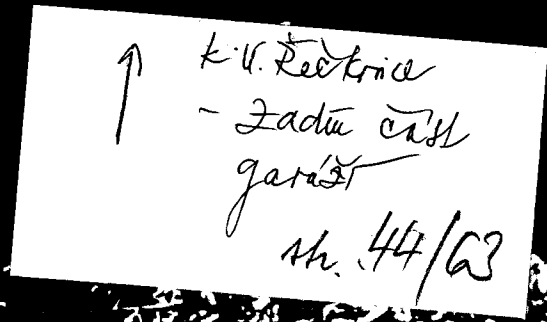 k.ú. Řečkovice
- zadní část
garáží
str. 44/63